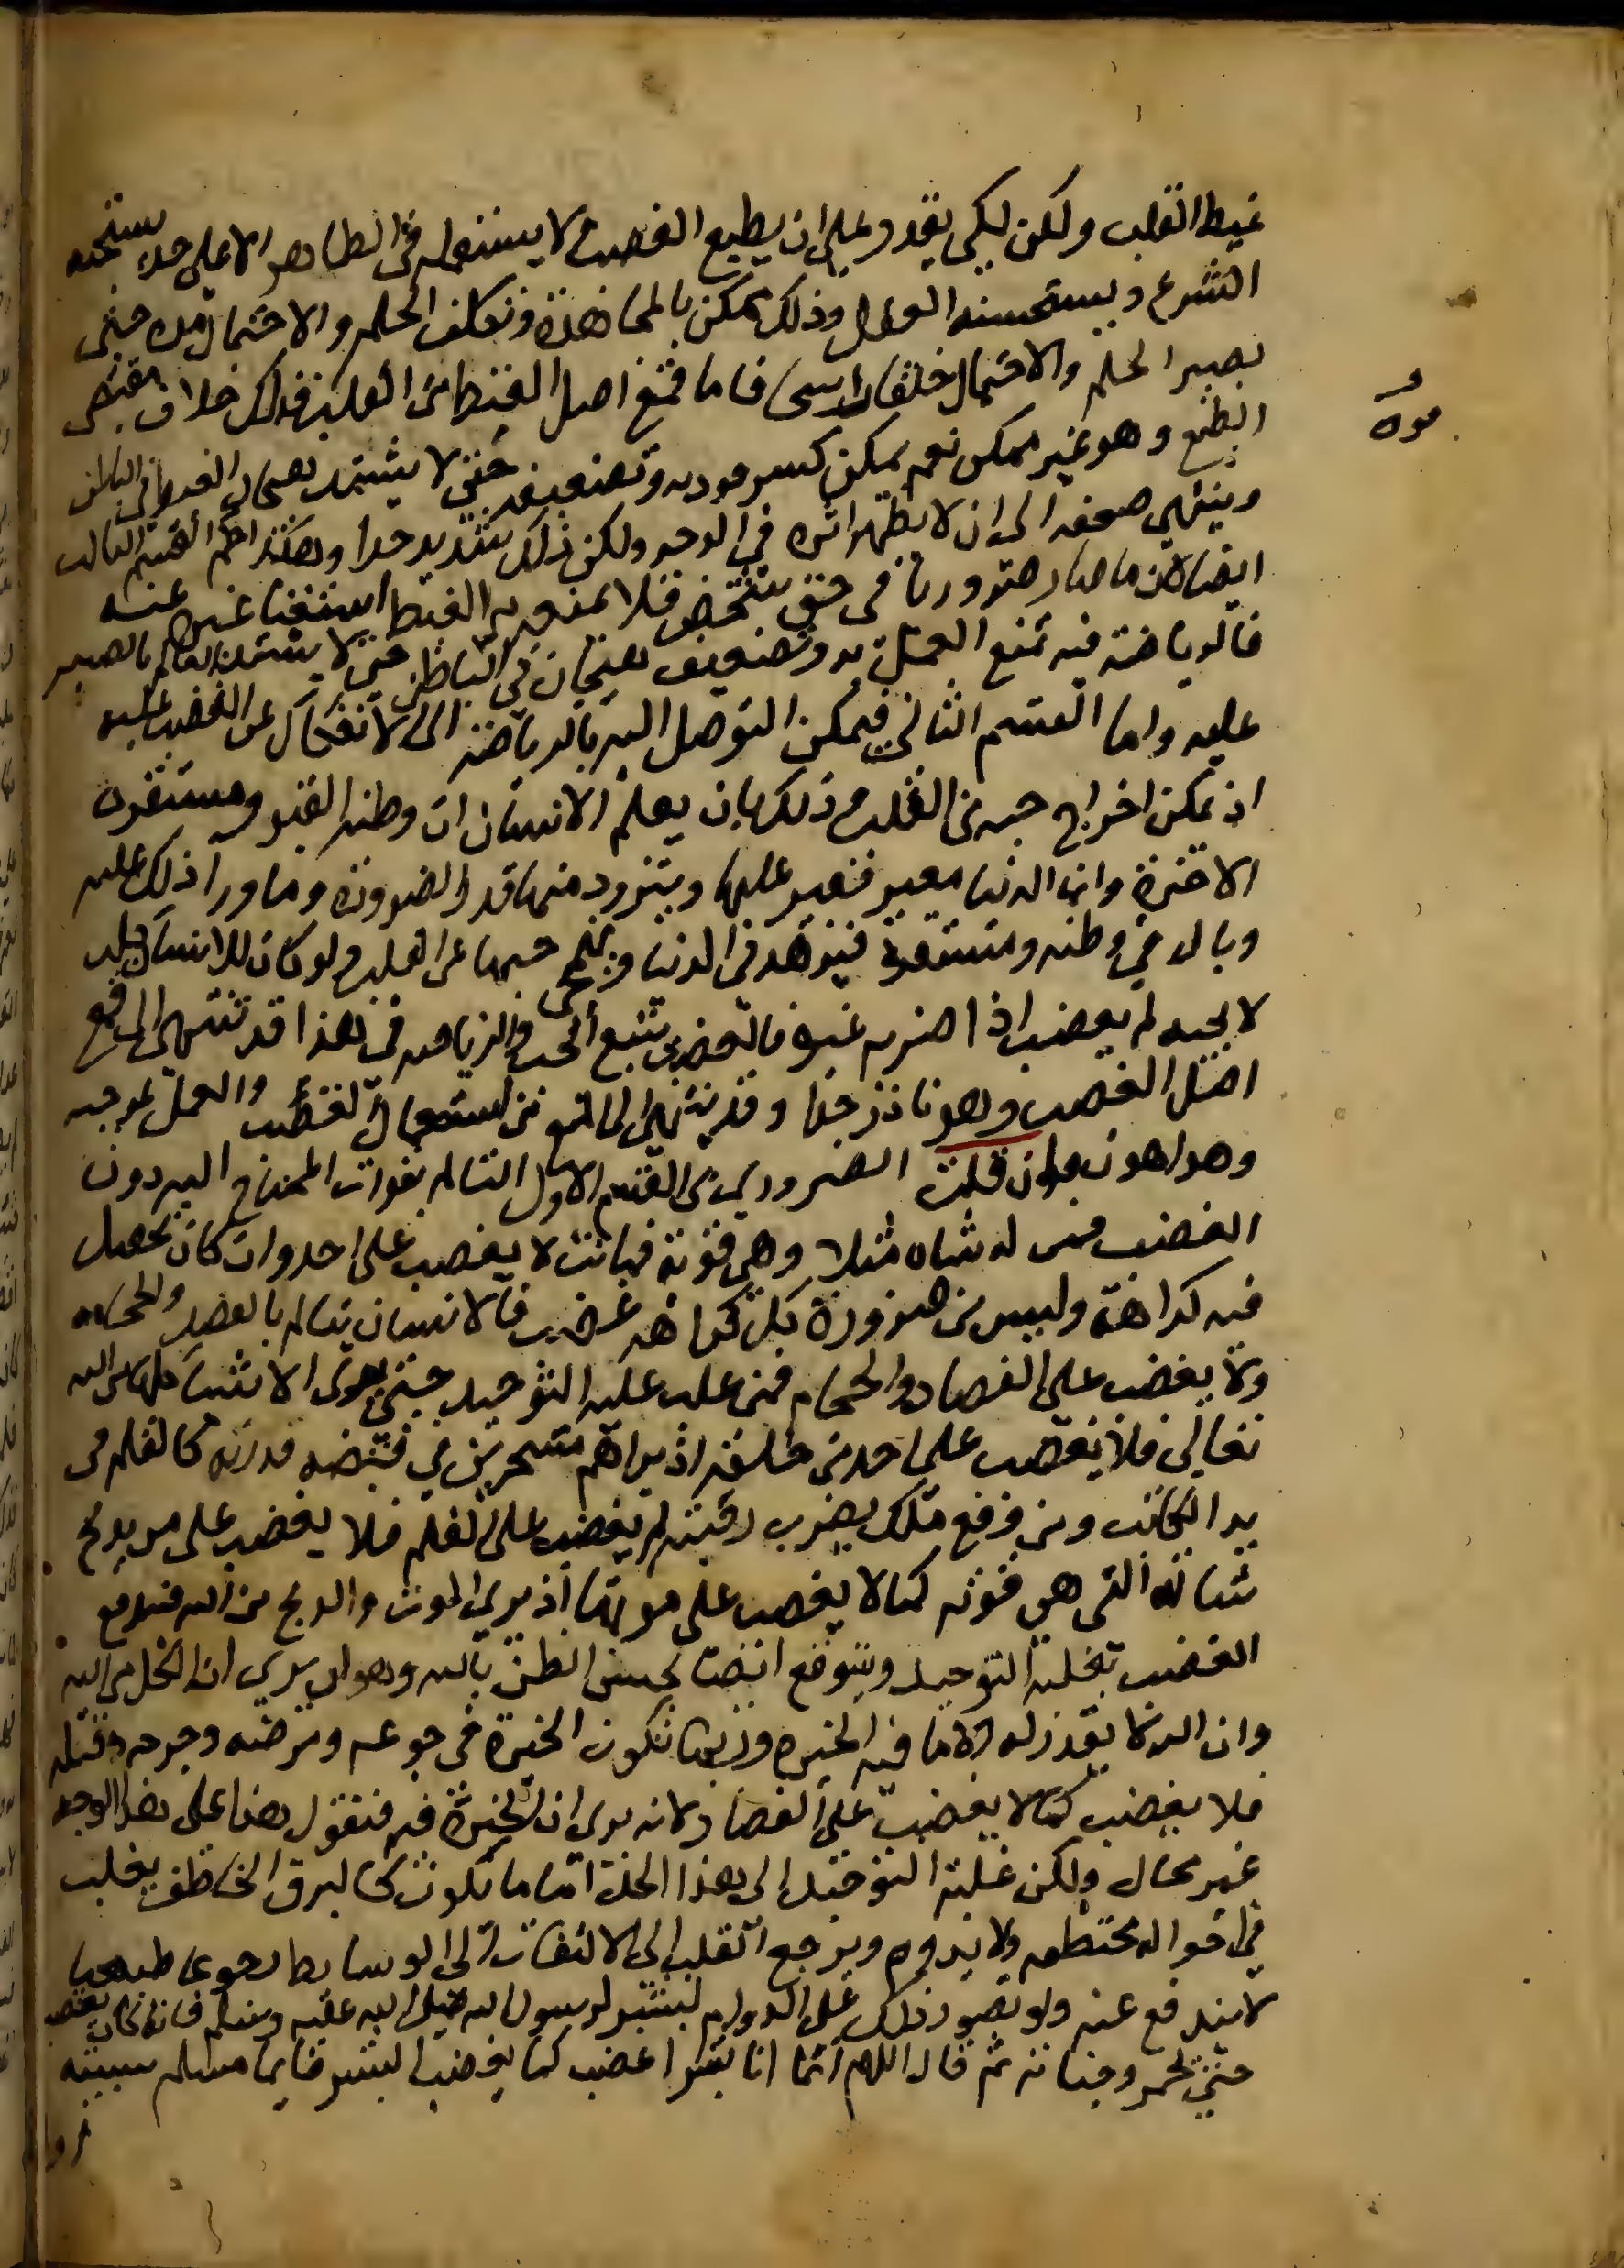 غيظ القلب ولكن لكي يقدر على ان يطيع الغضب لا يستعمله في الظاهر الا على حد يستحبه
الشرع ويستحسنه العقل وذلك ممكن بالمجاهدة وتكلف الحلم والاحتمال مده حتى
يصير الحلم والاحتمال خلقا راسخا فاما قمع اصل الغيظ من القلب فذلك خلاف مقتضى
الطبع وهو غير ممكن نعم يمكن كسر سورته وتضعيفه حتى لا يشتد هيجان الغيظ في الباطن
وينتهي ضعفه الى ان لا يظهر اثره في الوجه ولكن ذلك شديد جدا وهكذا حكم القسم الثالث
ايضا لان ما صار ضروريا في حق شخص فلا يمنعه من الغيظ استغنا غيره عنه
فالرياضة فيه تمنع العمل به وتضعيف هيجانه في الباطن حتى لا يشتد التالم بالصبر
عليه واما القسم الثاني فيمكن التوصل اليه بالرياضة الى الانفكاك عن الغضب عليه
اذ يمكن اخراج حبه من القلب وذلك بان يعلم الانسان ان وطنه القبر ومستقره
الاخرة وان الدنيا معبر فيعبر عليها ويتزود منها قدر الضرورة وما ورا ذلك عليه
وبال في وطنه ومستقره فيزهد في الدنيا ويمحى حبها عن القلب ولو كان للانسان كلب
لا يحبه لم يغضب اذا ضربه غيره فالغضب تتبع الحب والرياضة في هذا قد تنتهي الى قمع
اصل الغضب وهو نادر جدا وقد ينتهي الى المنع من استعمال الغضب والعمل بموجبه
وهو اهون فان قلت الضروري من القسم الاول التالم بفوات المحتاج اليه دون
الغضب فمن له شاه مثلا وهي قوته فماتت لا يغضب على احد وان كان يحصل
فيه كراهة وليس من ضرورة كل كراهة غضب فالانسان يتالم بالفصد والحجامه
ولا يغضب على الفصاد والحجام فمن غلب عليه التوحيد حتى يرى الاشيا كلها من الله
تعالى فلا يغضب على احد من خلقه اذ يراهم مسخرين في قبضه قدرته كالقلم في
يد الكاتب ومن وقع ملك بضرب رقبته لم يغضب على القلم فلا يغضب على من يذبح
شاته التي هي قوته كما لا يغضب على موتها اذ يرى الموت والذبح من الله فيندفع
الغضب بغلبة التوحيد ويندفع ايضا بحسن الظن بالله وهو ان يرى ان الكل من الله
وان الله لا يقدر له الا ما فيه الخيره وربما تكون الخيرة في جوعه ومرضه وجرحه وقتله
فلا يغضب كما لا يغضب على الفصاد لانه يرى ان الخيرة فيه فنقول هذا على هذا الوجه
غير محال ولكن غلبة التوحيد الى هذا الحد انما ما تكون كالبرق الخاطف يغلب
في احوال مختطفه ولا يدوم ويرجع القلب الى الالتفات الى الوسايط رجوعا طبيعيا
لا يندفع عنه ولو تصور ذلك على الدوام لبشر لرسول الله صلى الله عليه وسلم فانه كان يغضب
حتى تحمر وجناته ثم قال اللهم انما انا بشر اغضب كما يغضب البشر فايما مسلم سببته